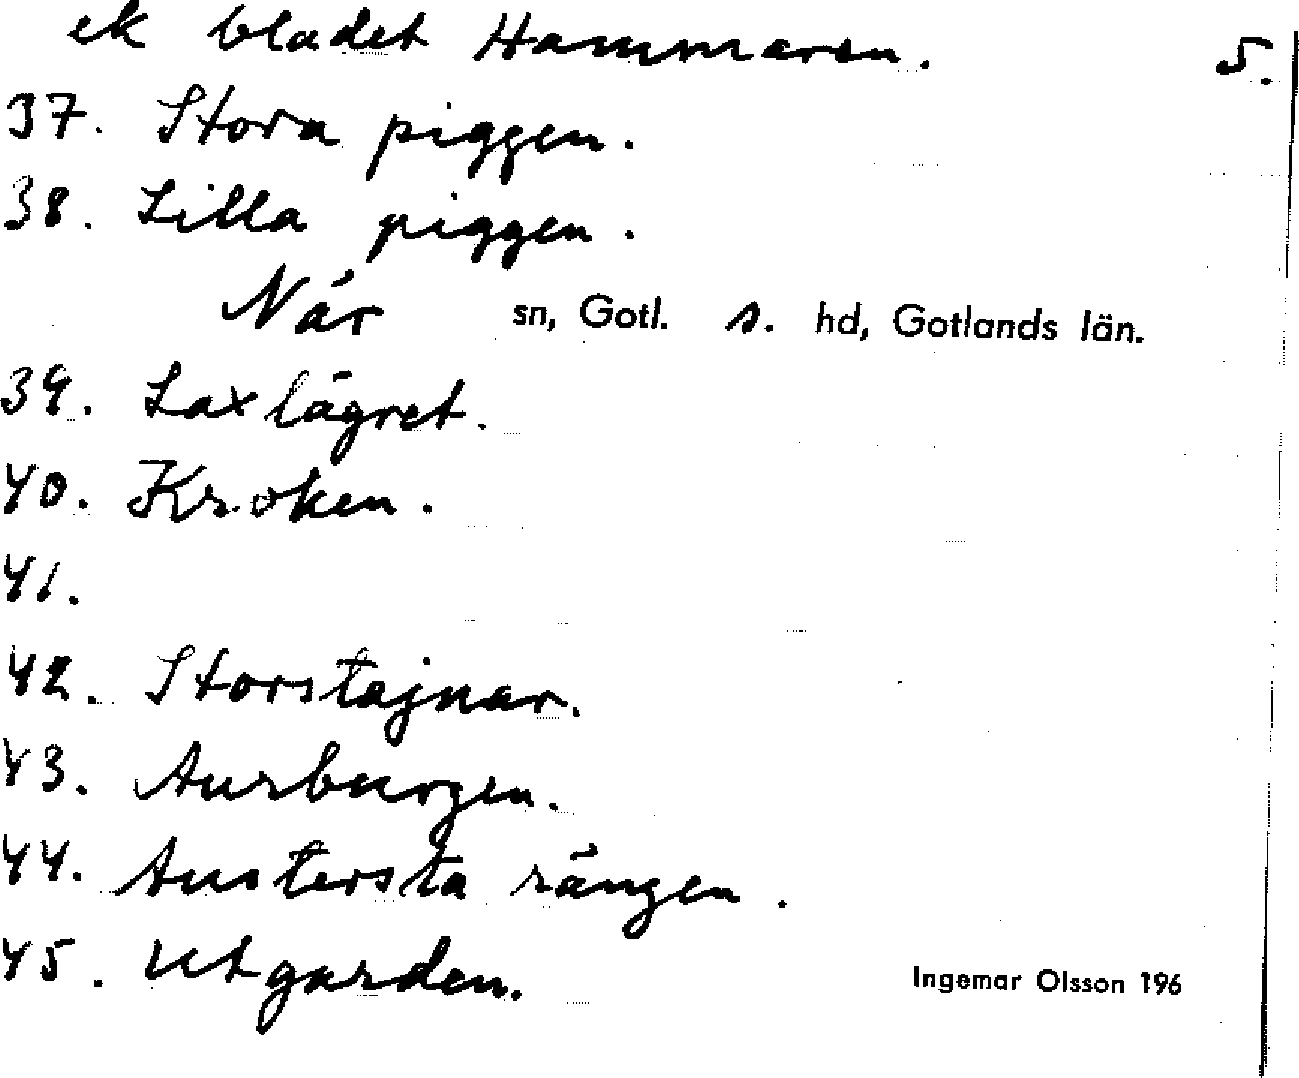 ek bladet Hammaren. 5.
37. Stora piggen.
38. Lilla piggen.
När sn, Gotl. s. hd, Gotlands län.
39. Laxlägret.
40. Kroken.
41.
42. Storstajnar.
43. Aurburgen.
44. Austersta rängen.
45. Utgarden.
Ingemar Olsson 196